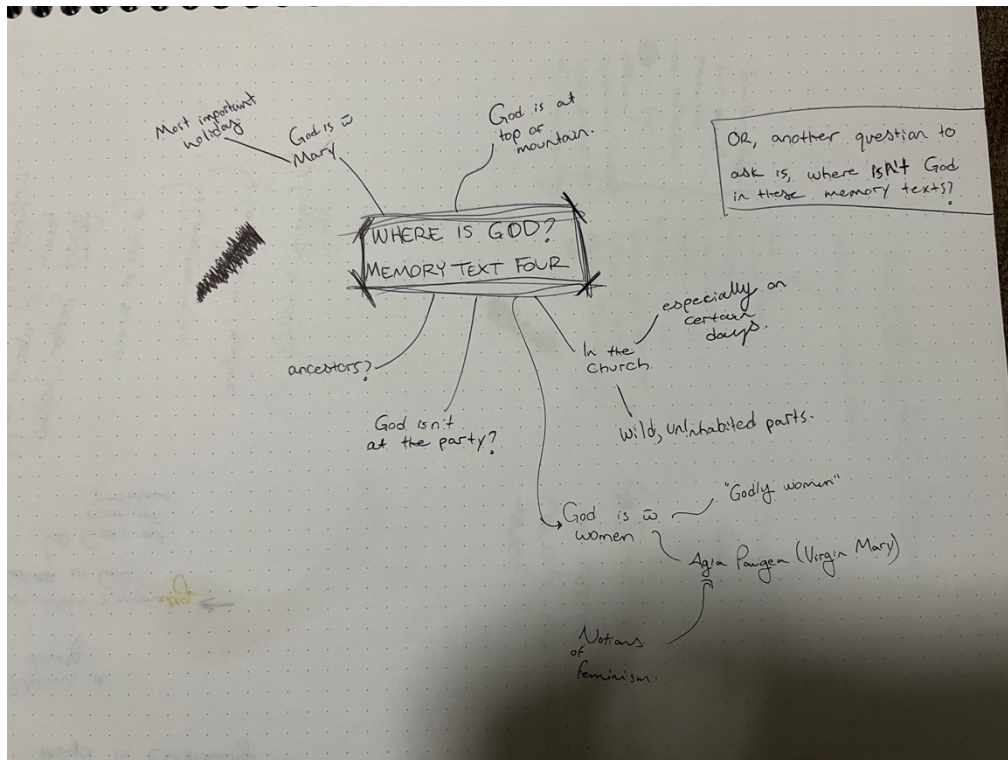 Most important
holiday.
God is w̄
Mary
God is at
top of
mountain.
OR, another question to
ask is, where isn't God
in these memory texts?
WHERE IS GOD?
MEMORY TEXT FOUR
ancestors?
God isn't
at the party?
In the
church.
especially on
certain
days.
wild, uninhabited parts.
God is w̄
women
"Godly women"
Agia Pangea (Virgin Mary)
Notions
of
feminism.